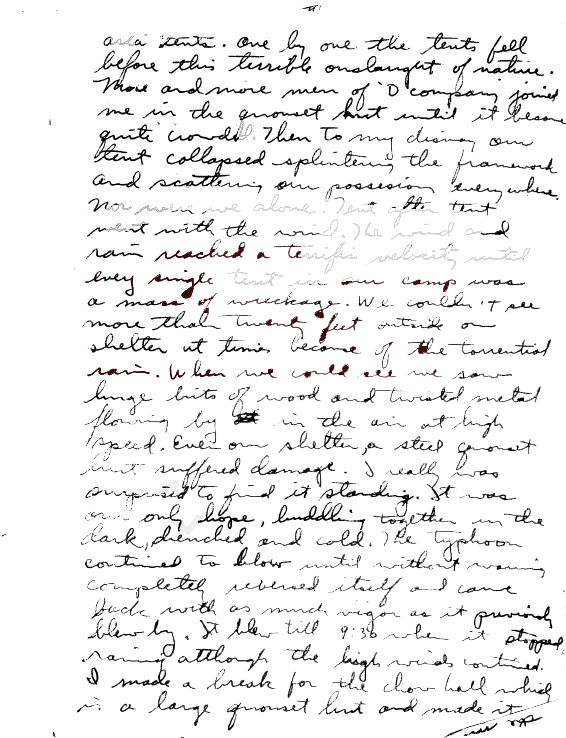 area tents. One by one the tents fell
before this terrible onslaught of nature.
More and more men of 'D company joined
me in the quonset hut until it became
quite crowded. Then to my dismay our
tent collapsed splintering the framework
and scattering our possesion everywhere.
Nor were we alone. Tent after tent
went with the wind. The wind and
rain reached a terrific velocity until
every single tent in our camp was
a mass of wreckage. We couldn't see
more than twenty feet outside our
shelter at times because of the torrential
rain. When we could see we saw
huge bits of wood and twisted metal
flowing by in the air at high
speed. Even our shelter, a steel quonset
hut suffered damage. I really was
surprised to find it standing. It was
our only hope, huddling together in the
dark, drenched and cold. The typhoon
continued to blow until without warning
completely reversed itself and came
back with as much vigor as it previously
blew by. It blew till 9:30 when it stopped
raining although the high winds continued.
I made a break for the chow hall which
is a large quonset hut and made it